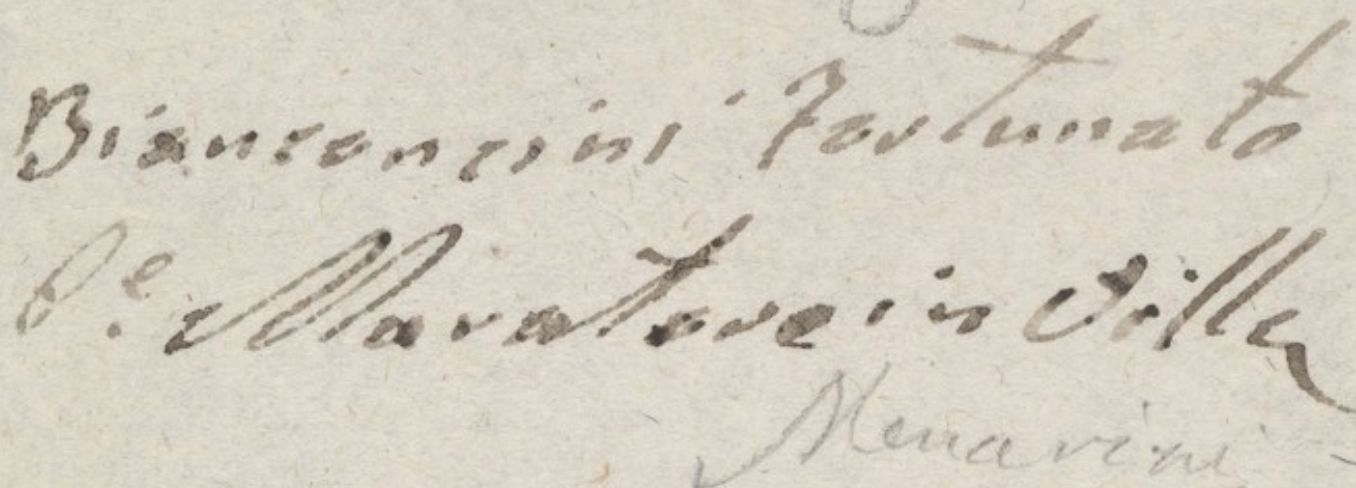 Bianconcini Fortunato
Maratore in Villa
Menarini